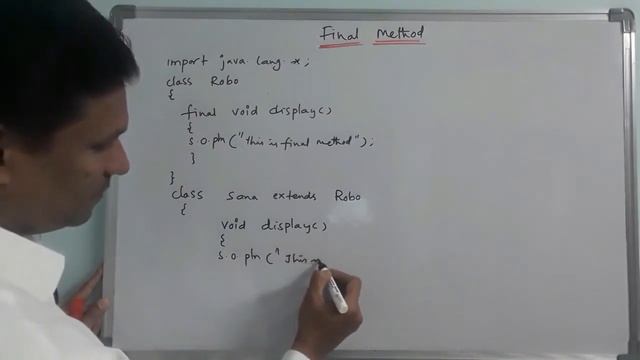 Final Method
import java.lang.*;
class Robo
{
final void display()
{
S.O.pln("This is final method");
}
}
class sana extends Robo
{
void display()
{
S.O.pln("This